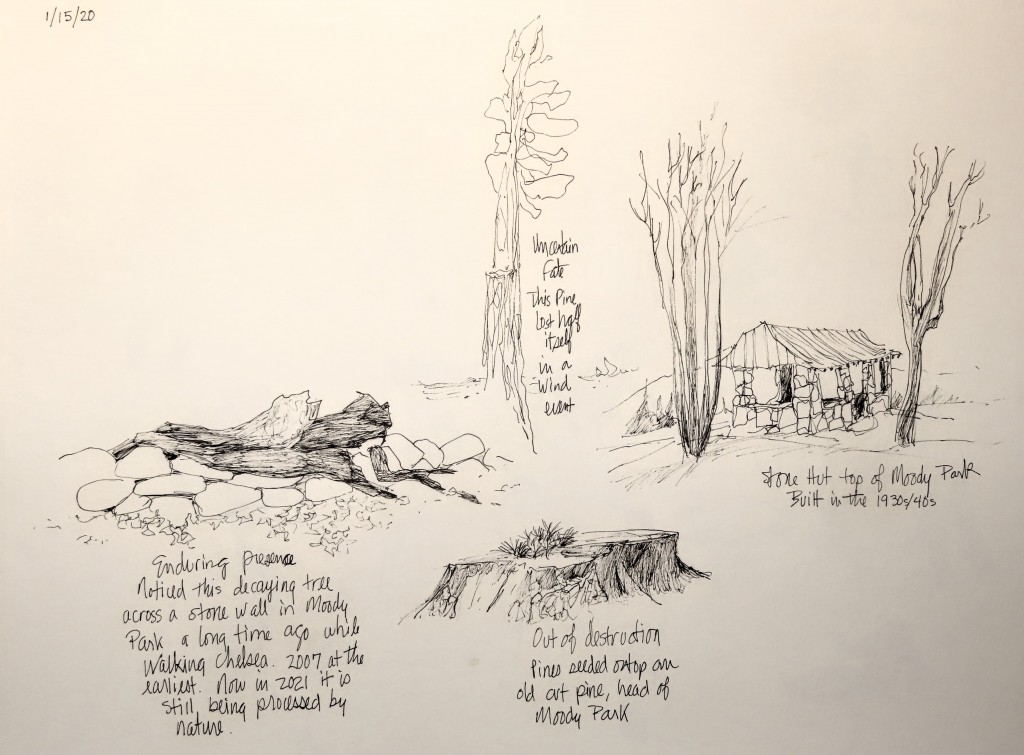 1/15/20
Uncertain
Fate
This Pine
Lost half
itself
in a
wind
event
Stone Hut top of Moody Park
Built in the 1930s/40s
Enduring presence
Noticed this decaying tree
across a stone wall in Moody
Park a long time ago while
walking Chelsea. 2007 at the
earliest. Now in 2021 it is
still being processed by
nature.
Out of destruction
Pines seeded ontop an
old cut pine, head of
Moody Park